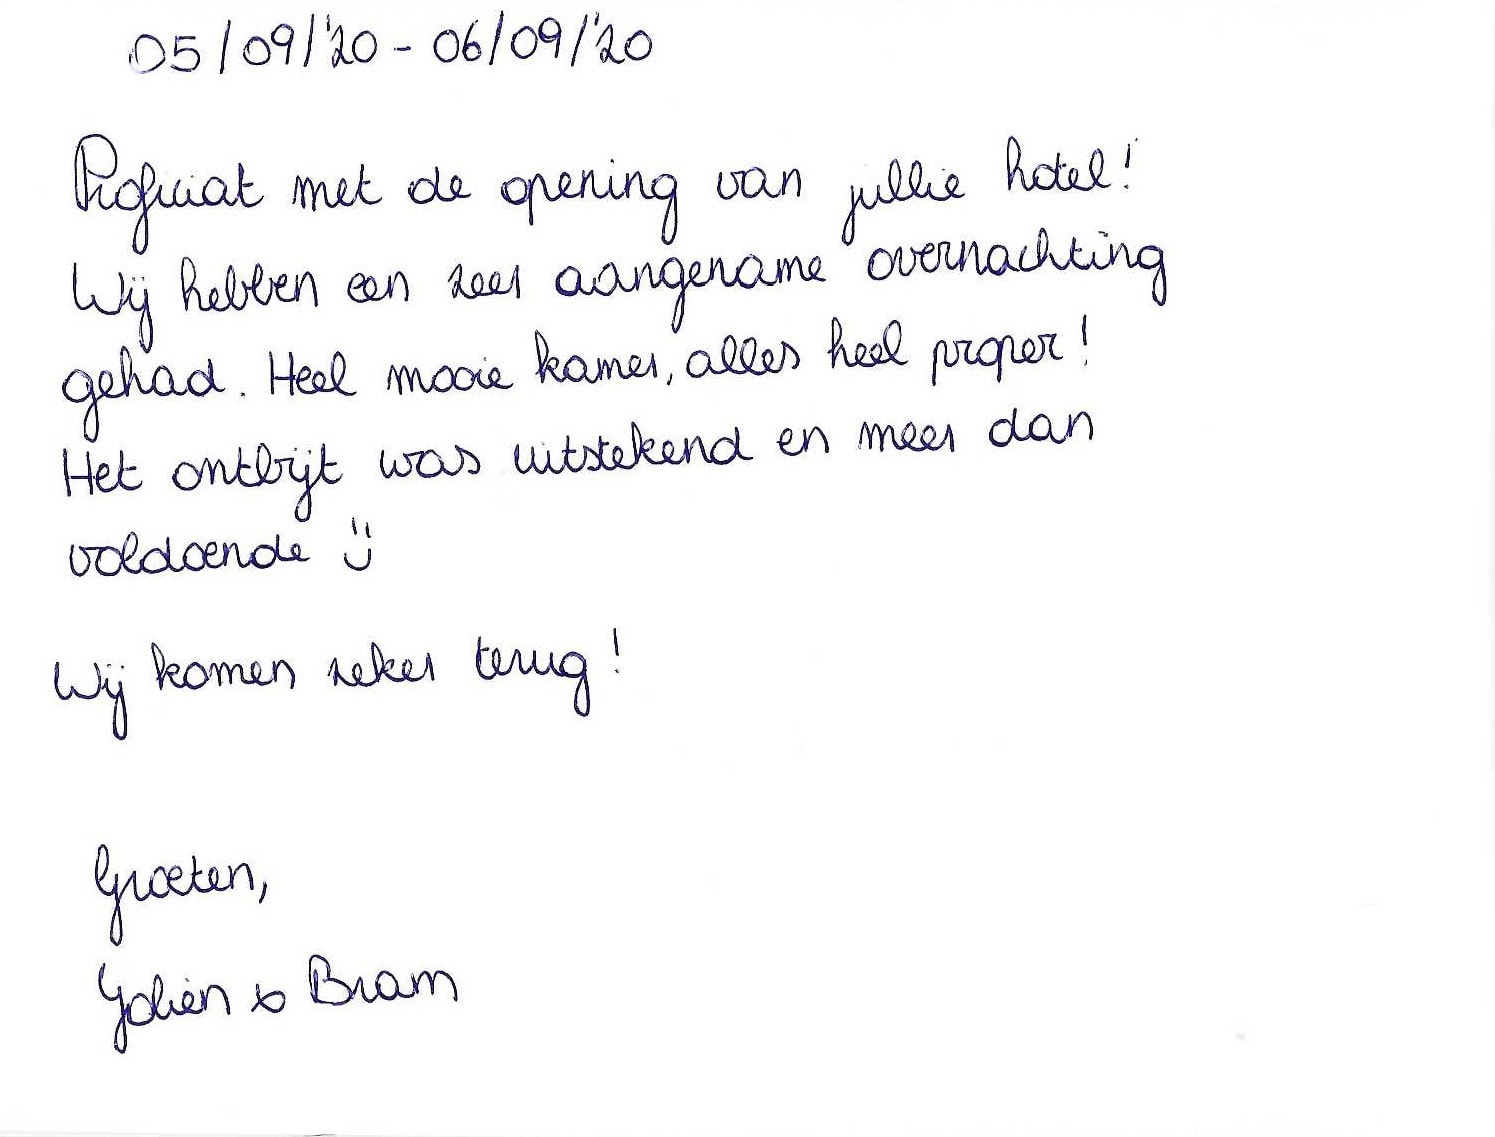 05/09/'20 - 06/09/'20
Proficiat met de opening van jullie hotel!
Wij hebben een zeer aangename overnachting
gehad. Heel mooie kamer, alles heel proper!
Het ontbijt was uitstekend en meer dan
voldoende :)
Wij komen zeker terug!
Groeten,
Jolien & Bram